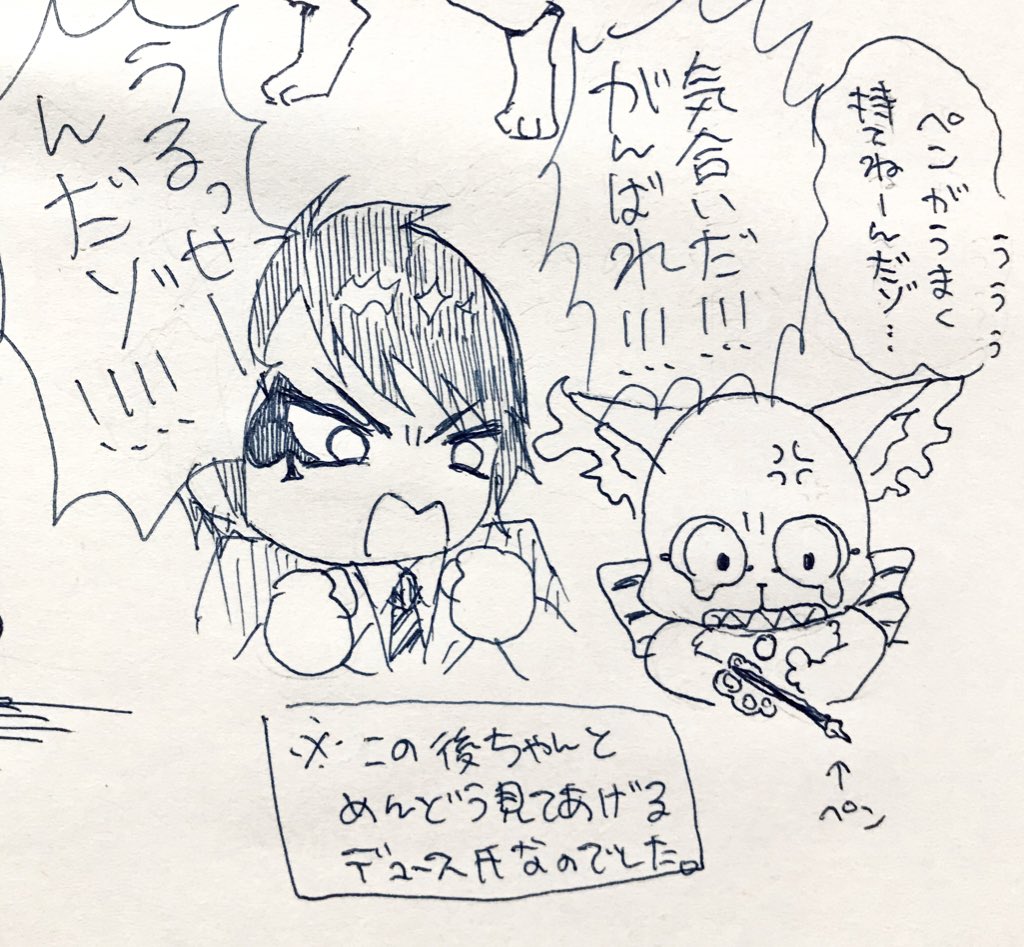 ううう
ペンがうまく
持てねーんだゾ…
気合いだ!!!
がんばれ!!!
うるっせー
んだゾ!!!!
↑
ペン
※この後ちゃんと
めんどう見てあげる
デュース氏なのでした。